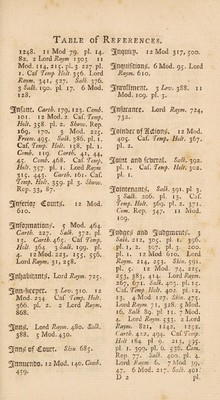 TABLE OF REFERENCES.
1248. 11 Mod 79. pl. 14.
82. 2 Lord Raym 1303 11
Mod. 114, 215. pl. 3. 227. pl.
1. Caf Temp Holt 356. Lord
Raym 341, 527. Salk. 376.
3 Salk. 190. pl. 17. 6 Mod.
128.
Infant. Carth. 179, 123. Comb.
101. 12 Mod. 2. Caf. Temp.
Holt, 358. pl. 2. Show. Rep.
169, 170. 3 Mod. 225.
Freem. 495. Salk. 386. pl. 1.
Caf. Temp. Holt, 138. pl. 1.
Comb. 119. Carth. 41, 44,
45. Comb. 468. Caf. Temp.
Holt, 357. pl. 1. Lord Raym
315, 443. Carth. 161. Caf.
Temp. Holt, 359. pl. 3. Show.
Rep. 33, 67.
Inferior Courts. 12 Mod.
610.
Informations. 5 Mod. 464.
Carth. 227. Salk. 372. pl.
13. Carth. 465. Caf Temp.
Holt 364. 3 Salk. 199. pl.
4. 12 Mod. 223. 155, 556.
Lord Raym. 31, 258.
Inhabitants. Lord Raym. 725.
Inn-keeper. 3 Lev. 310. 12
Mod. 234. Caf. Temp. Holt.
366. pl. 2. 2 Lord Raym.
868.
Inns. Lord Raym. 480. Salk.
388. 5 Mod. 430.
Inns of Court. Skin 685.
Innuendo. 12 Mod. 140. Comb.
459.
Inquiry. 12 Mod 317, 500.
Inquisitions. 6 Mod. 95. Lord
Raym. 610.
Inrollment. 3 Lev. 388. 11
Mod. 109. pl. 3.
Insurance. Lord Raym. 724,
732.
Joinder of Actions. 12 Mod.
405. Caf. Temp. Holt, 367.
pl. 2.
Joint and several. Salk. 392.
pl. 1. Caf. Temp. Holt, 302.
pl. 1.
Jointenants. Salk. 391. pl. 3.
3 Salk. 206. pl. 13. Caf.
Temp. Holt, 369. pl. 2. 371.
Com. Rep. 347. 11 Mod.
109.
Judges and Judgments. 3
Salk. 212, 305. pl. 1. 396.
pl. 1, 2. 397. pl. 3. 200.
pl. 1. 12 Mod 610. Lord
Raym. 214, 231. Skin. 591.
pl. 5. 11 Mod. 74, 225,
253, 383, 414. Lord Raym.
267, 671. Salk. 401. pl. 12.
Caf. Temp. Holt, 402. pl. 12,
13. 4 Mod 127. Skin. 475.
Lord Raym 71, 328. 5 Mod.
16. Salk 89. pl. 11. 7 Mod.
2. Lord Raym 533. 2 Lord
Raym. 821, 1142, 1252.
Carth. 412, 494. Caf Temp.
Holt 184. pl. 9. 213, 395.
pl. 1. 399. pl. 6. 536. Com.
Rep. 77. Salk. 400. pl. 4.
Lord Raym 6. 7 Mod. 39,
47. 6 Mod. 217. Salk. 401.
D 2 pl